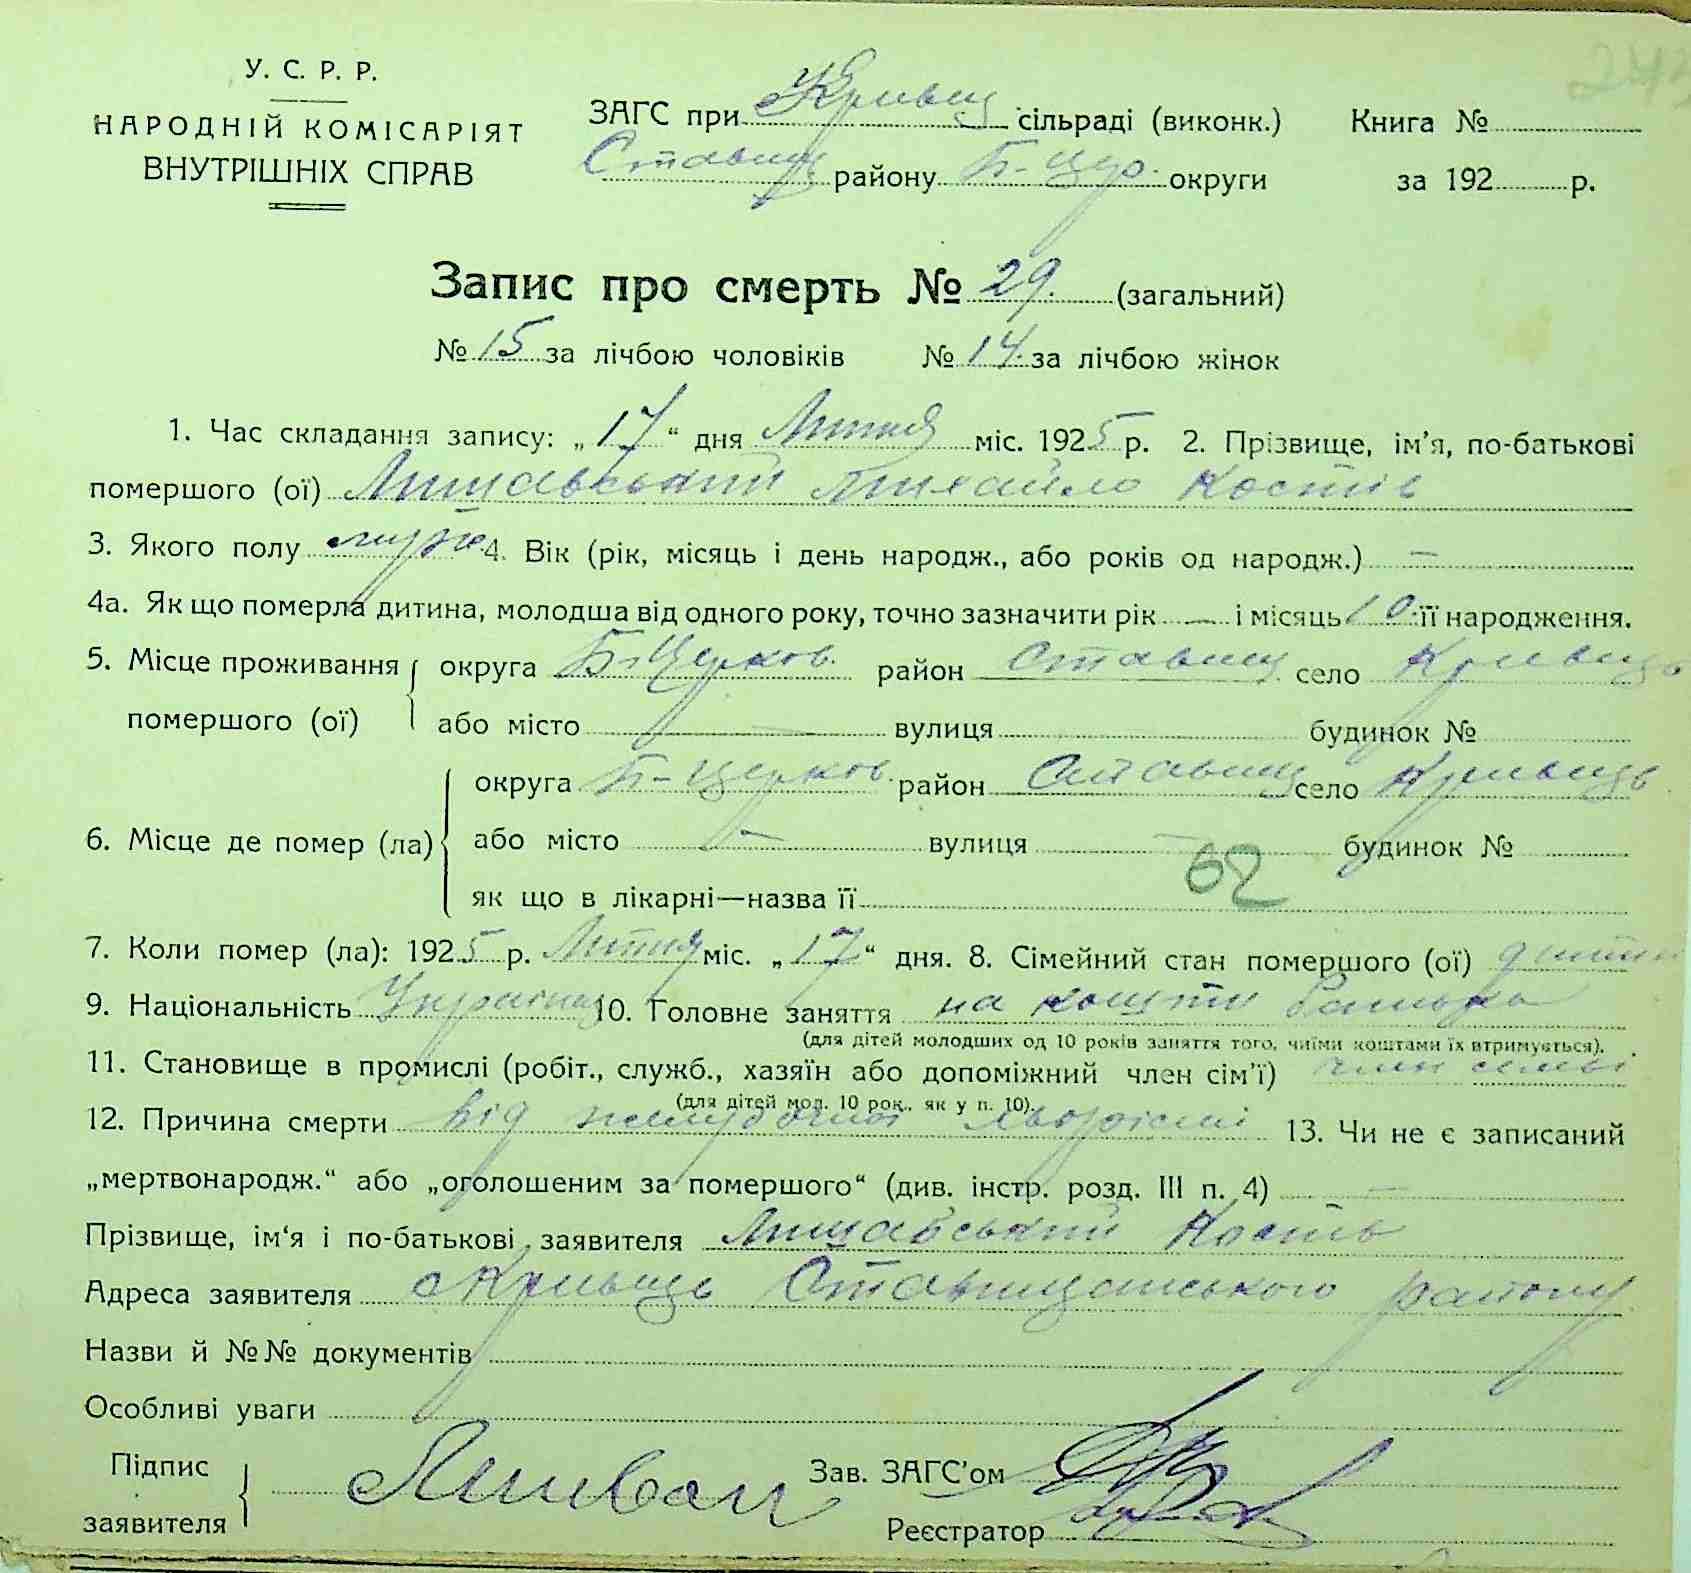 243
У. С. Р. Р.
НАРОДНІЙ КОМІСАРІЯТ
ВНУТРІШНІХ СПРАВ
ЗАГС при Кривец сільраді (виконк.) Книга №
Ставищ району Б-Цер. округи за 192 р.
Запис про смерть № 29. (загальний)
№ 15 за лічбою чоловіків № 14. за лічбою жінок
1. Час складання запису: „17“ дня Липня міс. 1925 р. 2. Прізвище, ім’я, по-батькові
помершого (ої) Лишавський Михайло Костів
3. Якого полу муж 4. Вік (рік, місяць і день народж., або років од народж.) —
4а. Як що померла дитина, молодша від одного року, точно зазначити рік — і місяць 10 її народження.
5. Місце проживання помершого (ої) округа Б-Церков. район Ставищ село Кривець
або місто — вулиця будинок №
6. Місце де помер (ла) округа Б-Церков. район Ставищ село Кривець
або місто — вулиця — будинок №
62
як що в лікарні—назва її
7. Коли помер (ла): 1925 р. Липня міс. „17“ дня. 8. Сімейний стан помершого (ої) дитин
9. Національність Україн 10. Головне заняття на кошти батька
(для дітей молодших од 10 років заняття того, чиїми коштами їх втримується).
11. Становище в промислі (робіт., служб., хазяїн або допоміжний член сім’ї) член семьі
(для дітей мол. 10 рок., як у п. 10).
12. Причина смерти від 13. Чи не є записаний
„мертвонародж.“ або „оголошеним за помершого“ (див. інстр. розд. III п. 4) —
Прізвище, ім‘я і по-батькові заявителя Лишавський Кость
Адреса заявителя с Кривець Ставищанського району
Назви й №№ документів
Особливі уваги
Підпис заявителя
Зав. ЗАГС’ом
Реєстратор